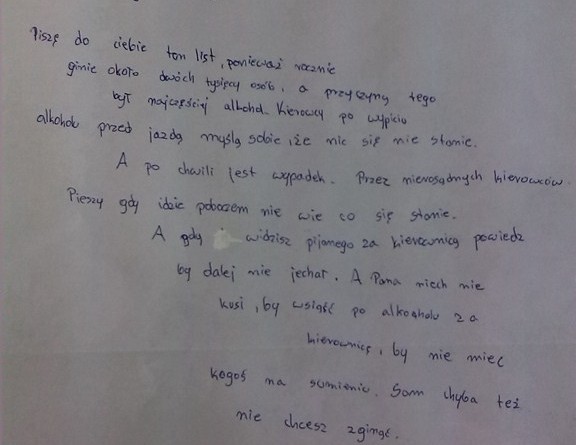 Piszę do ciebie ten list, ponieważ rocznie
ginie około dwóch tysięcy osób, a przyczyną tego
był najczęściej alkohol. Kierowcy po wypiciu
alkoholu przed jazdą myślą sobie, iże nic się nie stanie.
A po chwili jest wypadek. Przez nierosądnych kierowców.
Pieszy gdy idzie poboczem nie wie co się stanie.
A gdy widzisz pijanego za kierownicą powiedz
by dalej nie jechał. A Pana niech nie
kusi, by wsiąść po alkoholu za
kierownicę, by nie mieć
kogoś na sumieniu. Sam chyba też
nie chcesz zginąć.